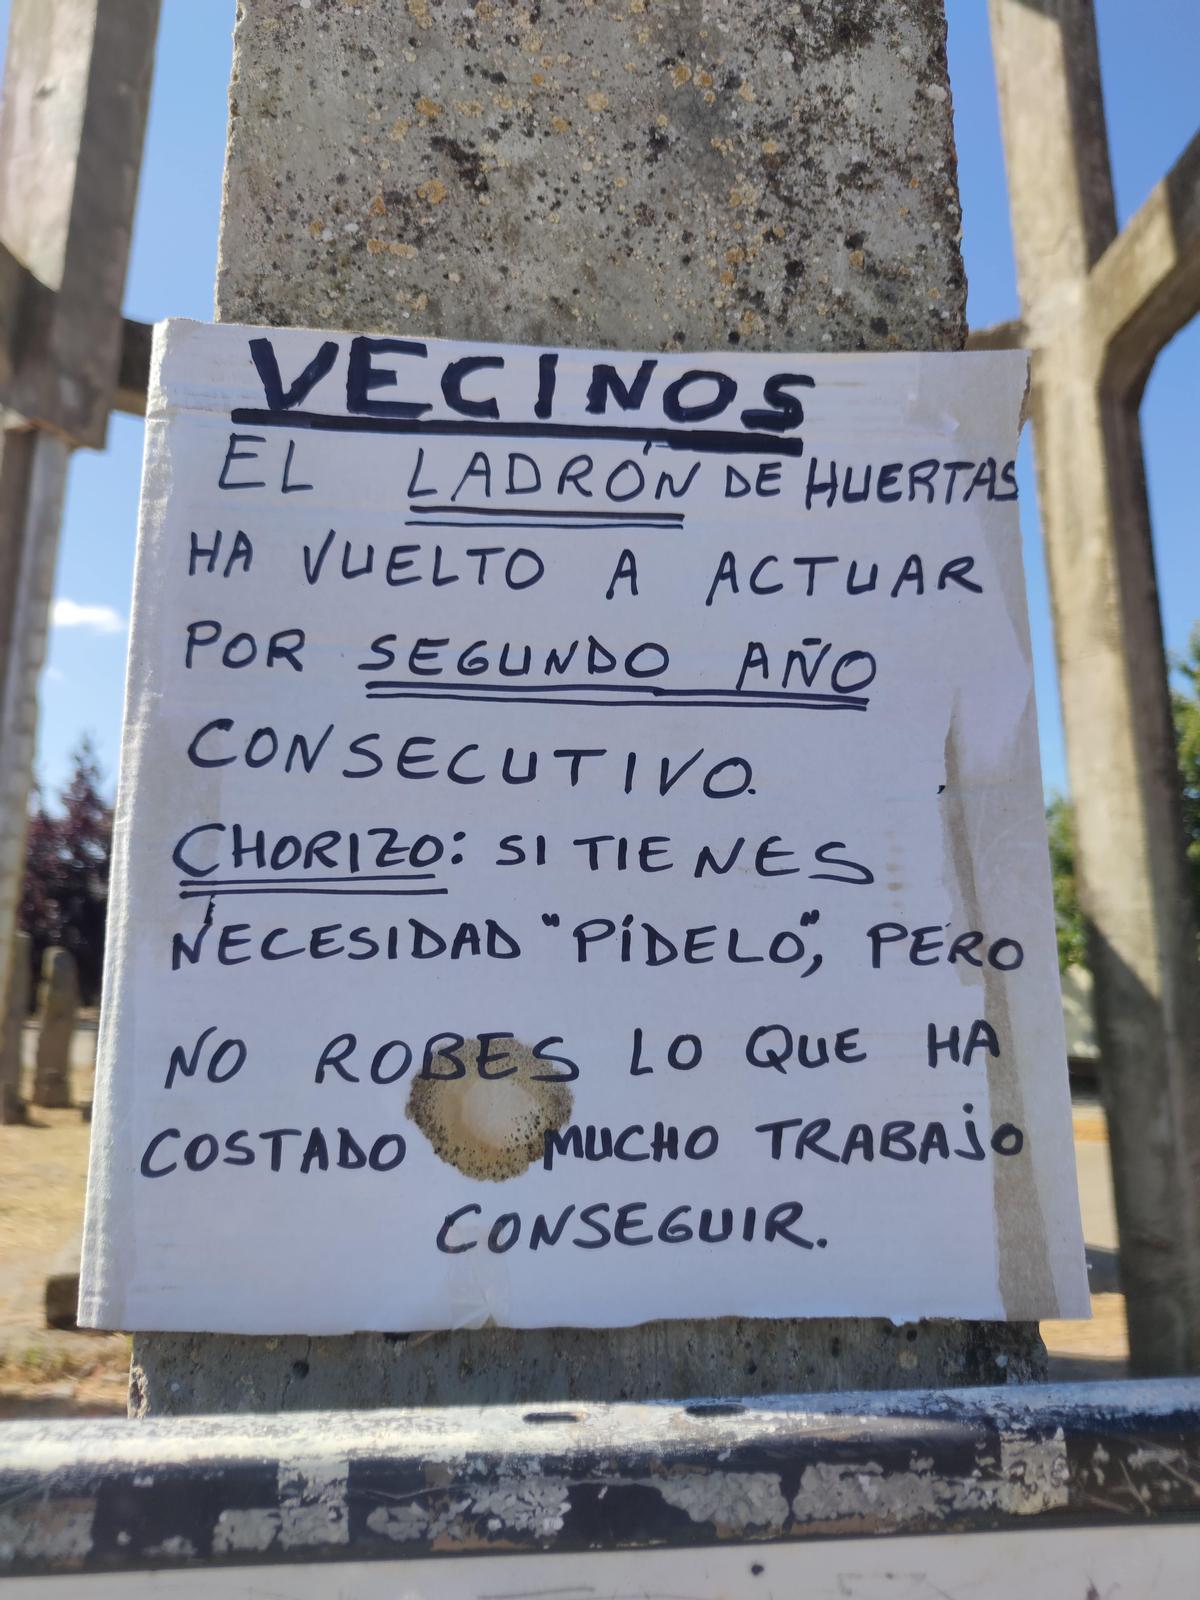 VECINOS
EL LADRÓN DE HUERTAS
HA VUELTO A ACTUAR
POR SEGUNDO AÑO
CONSECUTIVO.
CHORIZO: SI TIENES
NECESIDAD "PÍDELO", PERO
NO ROBES LO QUE HA
COSTADO MUCHO TRABAJO
CONSEGUIR.